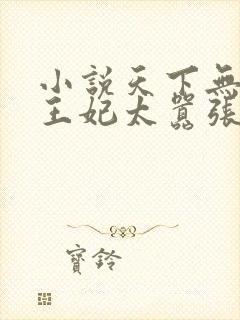 小說天下無
王妃太囂張
寶鈴